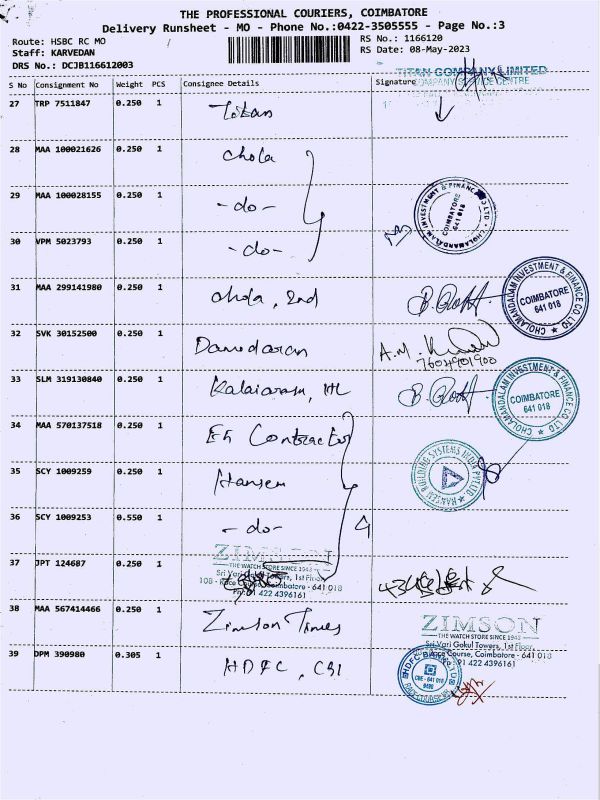 THE PROFESSIONAL COURIERS, COIMBATORE
Delivery Runsheet - MO - Phone No.:0422-3505555 - Page No.:3
Route: HSBC RC MO
RS No.: 1166120
Staff: KARVEDAN
RS Date: 08-May-2023
DRS No.: DCJB116612003
TITAN COMPANY LIMITED
S No Consignment No Weight PCS Consignee Details Signature
27 TRP 7511847 0.250 1 Titan
28 MAA 100021626 0.250 1 Chola
29 MAA 100028155 0.250 1 -do-
CHOLAMANDALAM INVESTMENT & FINANCE CO LTD
COIMBATORE
641 018
30 VPM 5023793 0.250 1 -do-
31 MAA 299141980 0.250 1 Chola, 2nd
CHOLAMANDALAM INVESTMENT & FINANCE CO LTD
COIMBATORE
641 018
32 SVK 30152500 0.250 1 Damodaran A.M.
33 SLM 319130840 0.250 1 Kalaiarasu, HL
CHOLAMANDALAM INVESTMENT & FINANCE CO LTD
COIMBATORE
641 018
34 MAA 570137518 0.250 1 Contractor
35 SCY 1009259 0.250 1 Hansen
HANSEN BUILDING SYSTEMS INDIA PVT LTD
36 SCY 1009253 0.550 1 -do-
ZIMSON
THE WATCH STORE SINCE 1948
37 JPT 124687 0.250 1
Sri Vari Gokul Towers, 1st Floor,
108 - Race Course, Coimbatore - 641 018
Ph: 91 422 4396161
38 MAA 567414466 0.250 1 Zimson Times
ZIMSON
THE WATCH STORE SINCE 1948
Sri Vari Gokul Towers, 1st Floor,
Race Course, Coimbatore - 641 018
Ph: 91 422 4396161
39 DPM 390980 0.305 1 HDFC, CSI
HDFC BANK LTD
CBE - 641 018
RACE COURSE